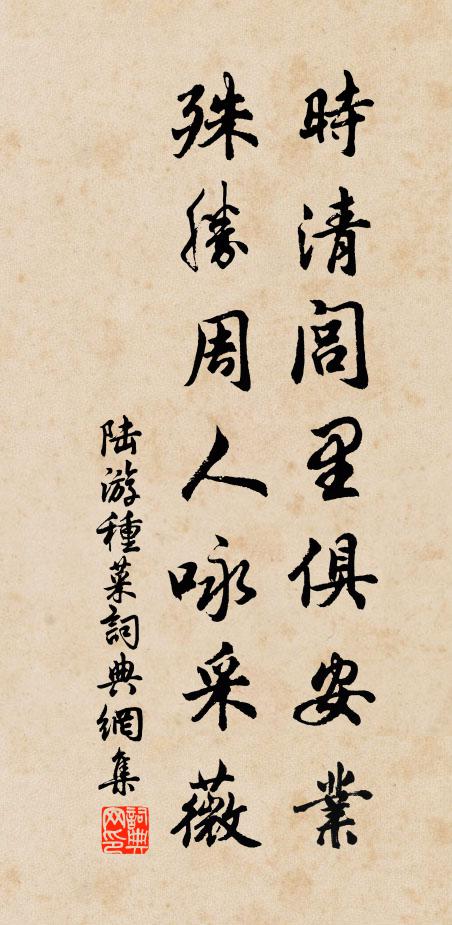 時清閭里俱安業
殊勝周人咏采薇
陸游種菜詞典網集
詞典網印